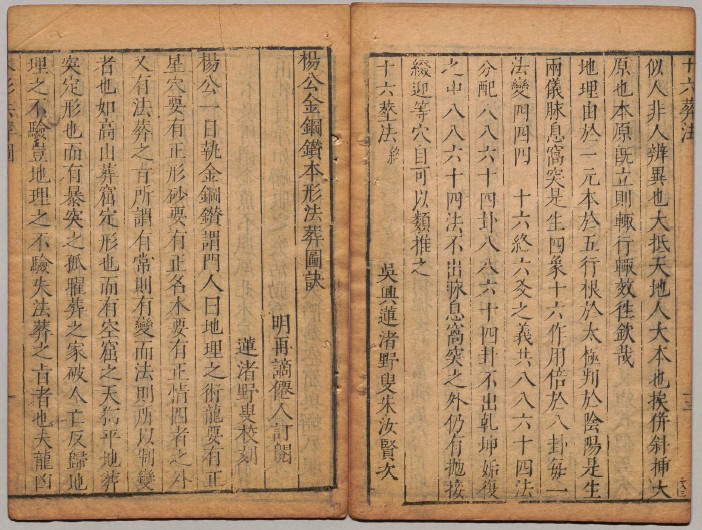 十六葬法
似人非人辨異也大抵天地人大本也挨併斜揷大
原也本原旣立則輙行輙效徃欽哉
地理由於一元本於五行根於太極判於陰陽是生
兩儀脉息窩突是生四象十六作用倍於八卦每一
法變四四四 十六終六爻之義共八八六十四法
分配八八六十四卦八八六十四卦不出乾坤姤復
之中八八六十四法不出脉息窩突之外仍有抛接
綴迎等穴自可以類推之
吳興蓮渚野叟朱汝賢次
十六塟法終
楊公金鋼鑽本形法葬圖訣
明再謫僊人訂閱
蓮渚野叟校刻
楊公一日執金鋼鑽謂門人曰地理之術龍要有正
星穴要有正形砂要有正名水要有正情四者之外
又有法葬之旨所謂有常則有變而法則所以制變
者也如高山葬窩定形也而有空窟之天𤜶平地葬
突定形也而有暴突之孤曜葬之家破人亡反歸地
理之不驗豈地理之不驗失法葬之旨者也夫龍凶